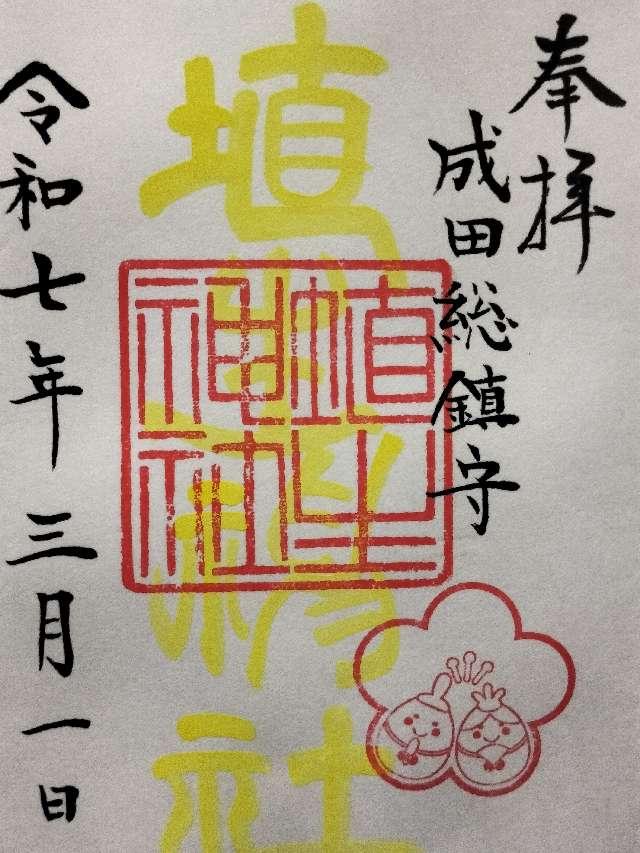 奉拝
成田総鎮守
埴生神社
埴生神社
令和七年三月一日